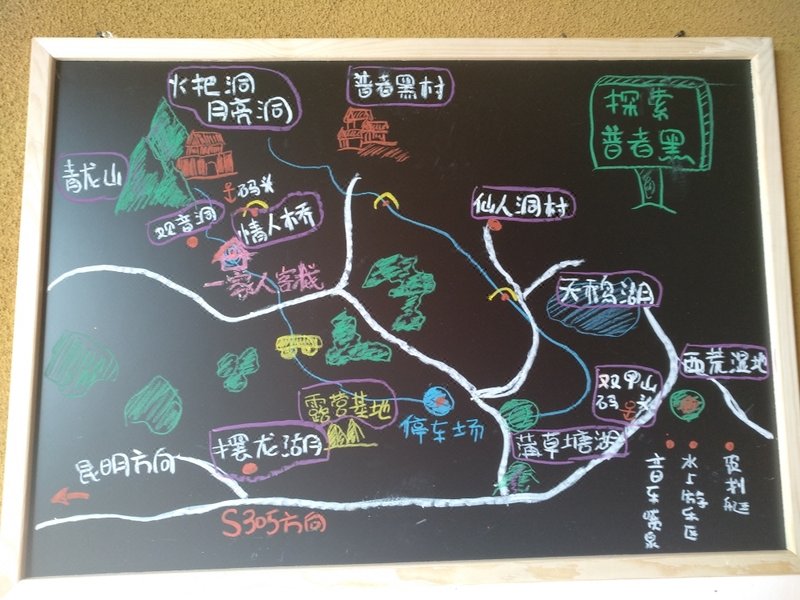 火把洞
月亮洞
普者黑村
探索
普者黑
青龙山
码头
观音洞
情人桥
仙人洞村
一家人客栈
天鹅湖
西荒湿地
双甲山
码头
露营基地
停车场
蒲草塘湖
摆龙湖
昆明方向
S305方向
音乐喷泉
水上游乐区
皮划艇